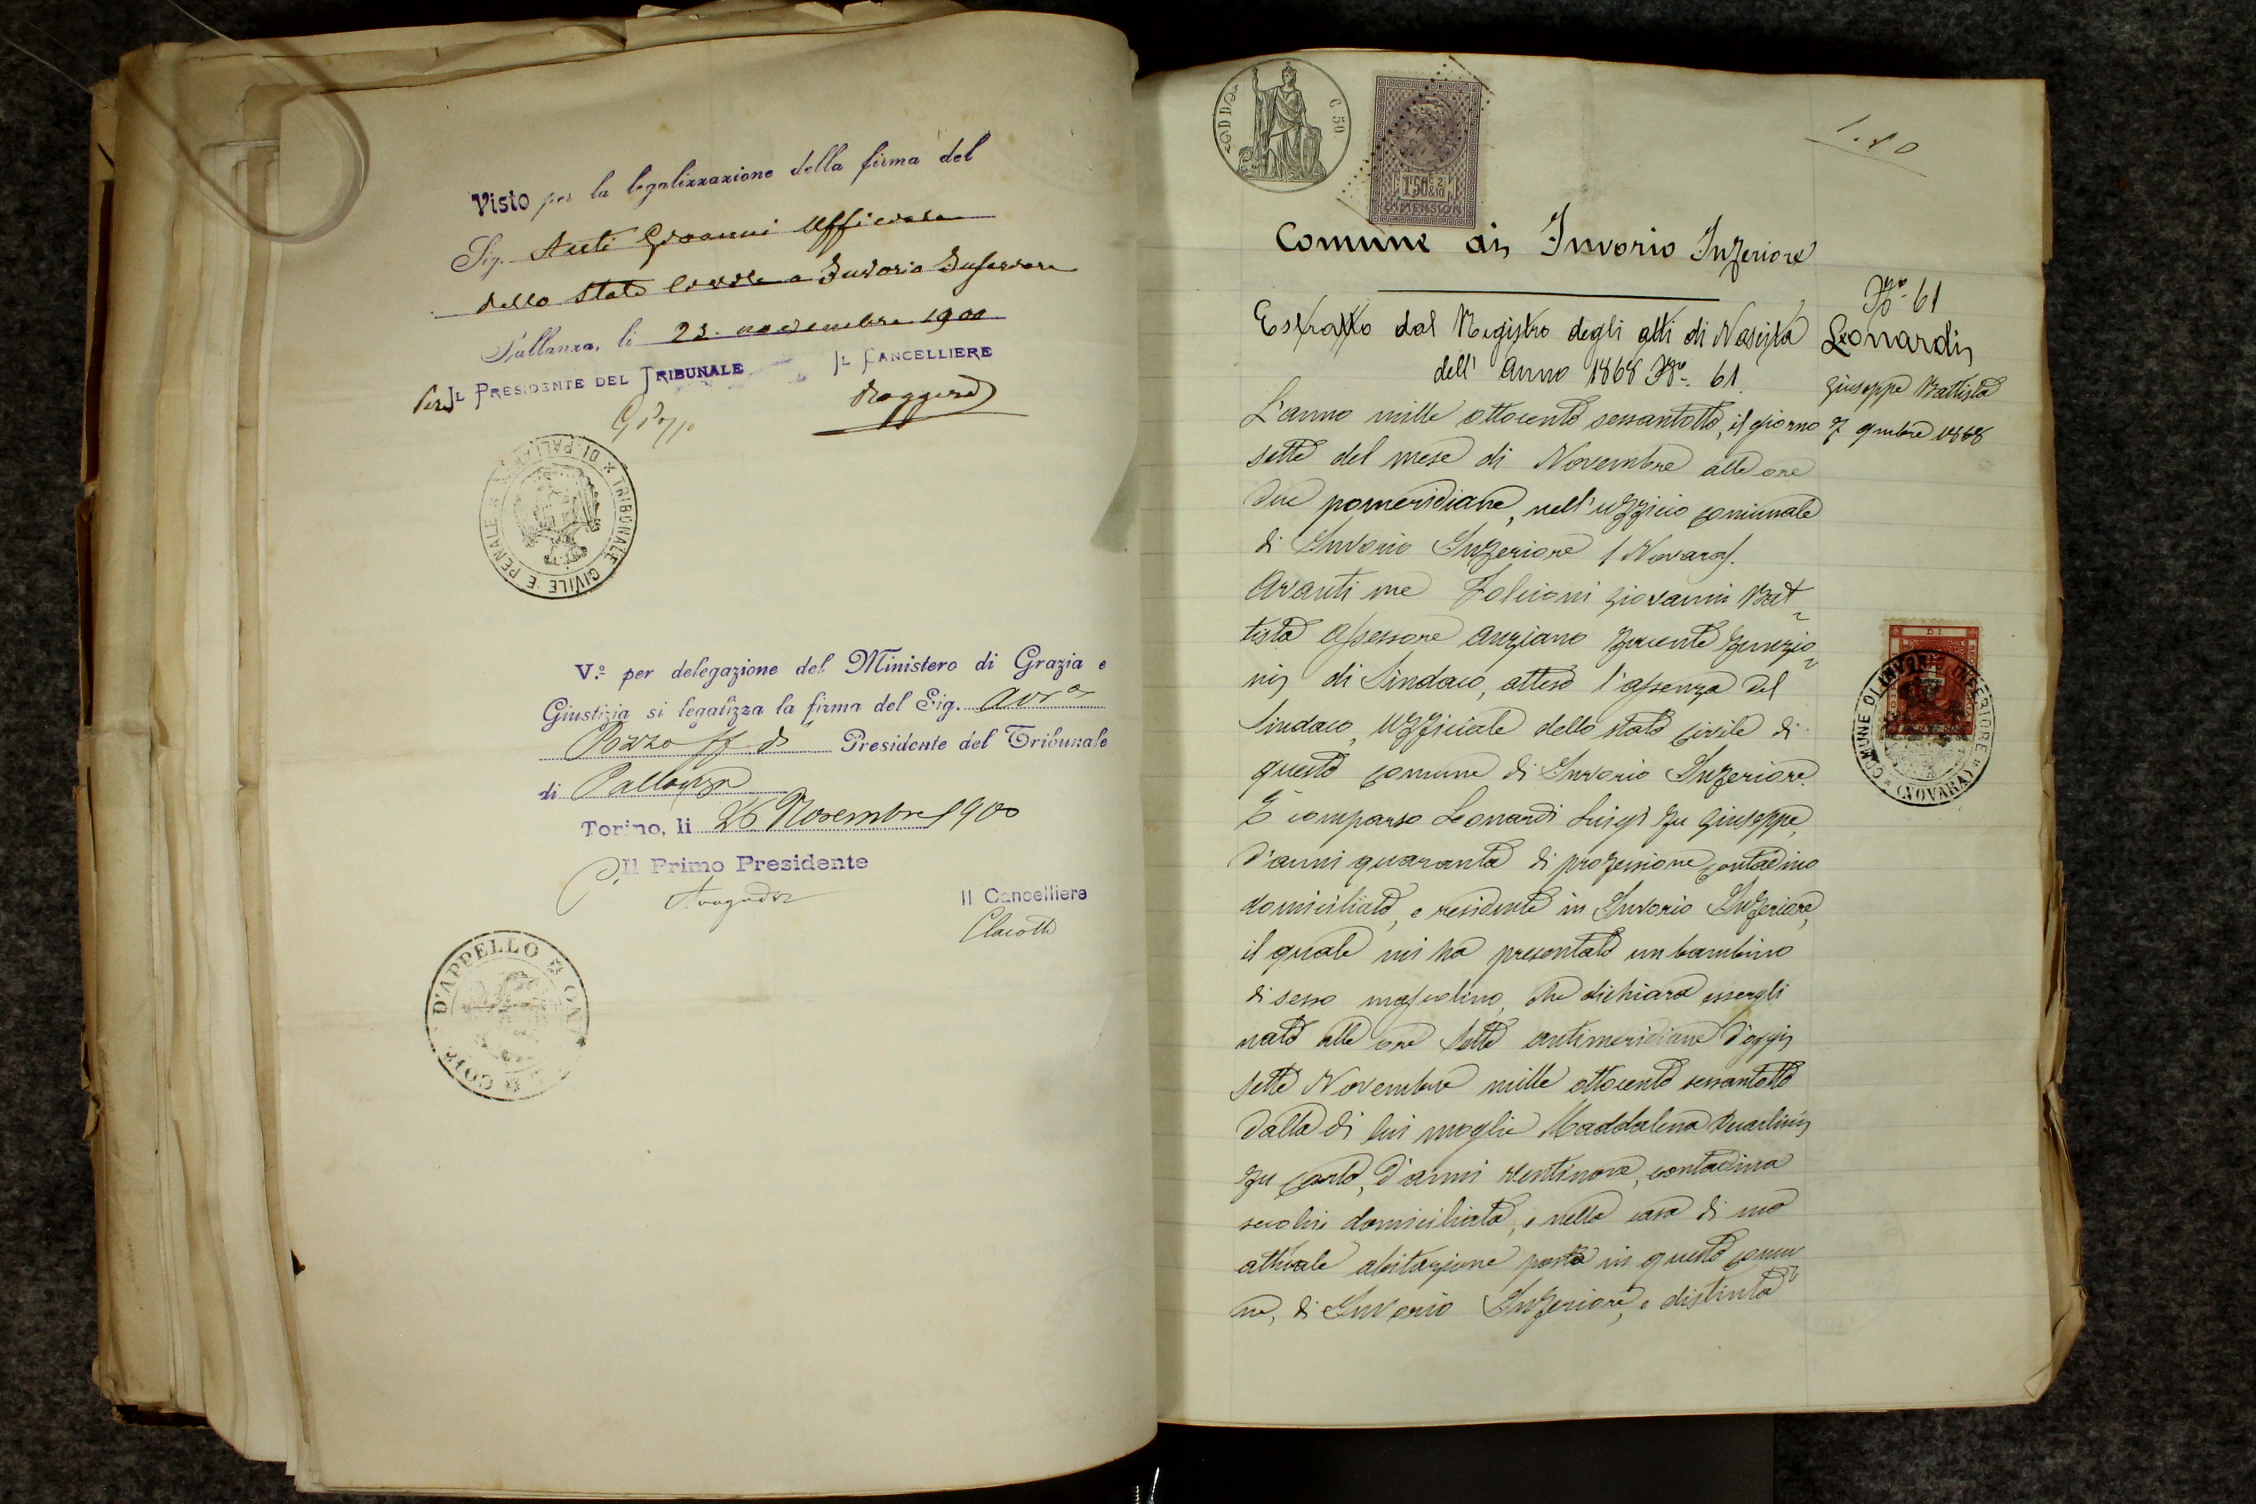 Visto per la legalizzazione della firma del
Sig. Giovanni Ufficiale
dello Stato Civile a Invorio Inferiore
Pallanza, li 23 novembre 1900
Per IL PRESIDENTE DEL TRIBUNALE
IL CANCELLIERE
TRIBUNALE CIVILE E PENALE DI PALLANZA
V.º per delegazione del Ministero di Grazia e
Giustizia si legalizza la firma del Sig. Avv.
Pozzo ff di Presidente del Tribunale
di Pallanza
Torino, li 26 Novembre 1900
P. Il Primo Presidente
Il Cancelliere
D'APPELLO
C. 50
1F50c 2/10
DIMENSION
1.80
Comune di Invorio Inferiore
Estratto dal Registro degli atti di Nascita
dell' Anno 1868 No. 61
No. 61
Leonardi
Giuseppe Battista
7 9mbre 1868
L'anno mille ottocento sessantotto, il giorno
sette del mese di Novembre alle ore
due pomeridiane, nell'ufficio comunale
di Invorio Inferiore (Novara).
Avanti me Folcioni Giovanni Bat-
tista assessore anziano facente funzio-
ni di Sindaco, atteso l'assenza del
Sindaco, Uffiziale dello stato civile di
questo comune di Invorio Inferiore.
È comparso Leonardi Luigi fu Giuseppe,
d'anni quaranta di professione contadino
domiciliato, e residente in Invorio Inferiore,
il quale mi ha presentato un bambino
di sesso mascolino, che dichiara essergli
nato alle ore sette antimeridiane d'oggi
sette Novembre mille ottocento sessantotto
dalla di lui moglie Maddalena
fu Carlo, d'anni ventinove, contadina
seco lui domiciliata, e nella casa di sua
attuale abitazione posta in questo comu
ne, di Invorio Inferiore, e distinta
COMUNE DI INVORIO INFERIORE
(NOVARA)